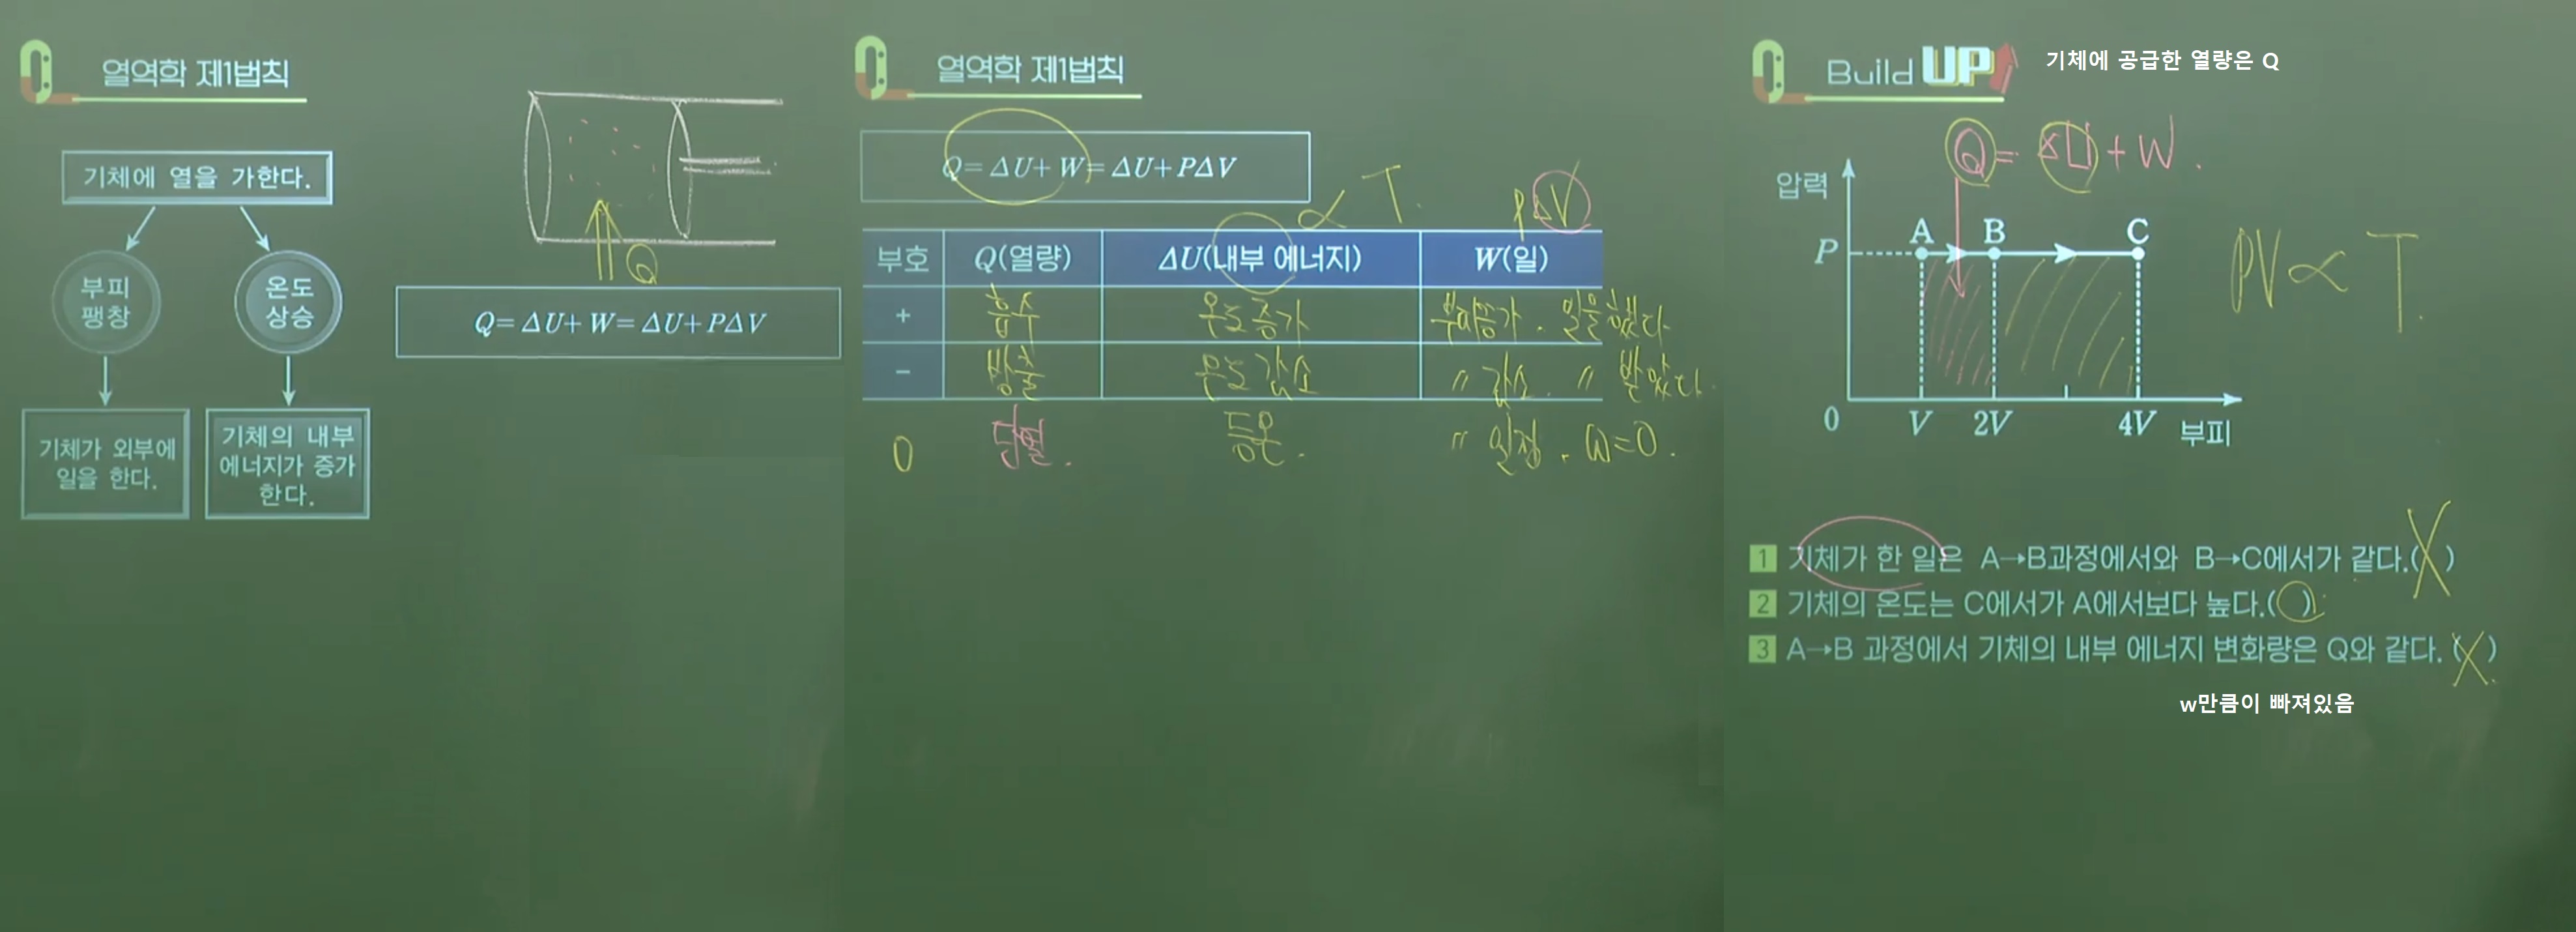 열역학 제1법칙
기체에 열을 가한다.
부피
팽창
온도
상승
기체가 외부에
일을 한다.
기체의 내부
에너지가 증가
한다.
Q
Q=ΔU+W=ΔU+PΔV
열역학 제1법칙
Q=ΔU+W=ΔU+PΔV
∝ T.
PΔV
부호 Q(열량) ΔU(내부 에너지) W(일)
+ 흡수 온도 증가 부피증가. 일을 했다
- 방출 온도 감소 〃 감소. 〃 받았다.
0 단열. 등온. 〃 일정. W=0.
Build UP
기체에 공급한 열량은 Q
Q = ΔU + W.
압력
A B C
P
PV ∝ T.
0 V 2V 4V 부피
1 기체가 한 일은 A→B과정에서와 B→C에서가 같다.(X)
2 기체의 온도는 C에서가 A에서보다 높다.(O)
3 A→B 과정에서 기체의 내부 에너지 변화량은 Q와 같다. (X)
w만큼이 빠져있음